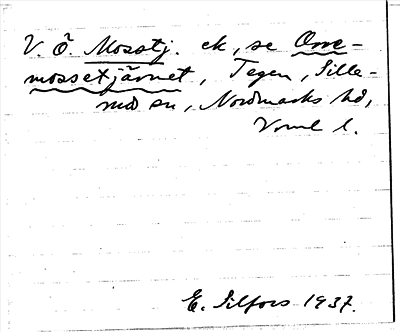 V. Ö. Mosstj. ek, se Orre-
mossetjärnet, Tegen, Sille-
rud sn, Nordmarks hd,
Vrml l.
E. Silfors 1937.